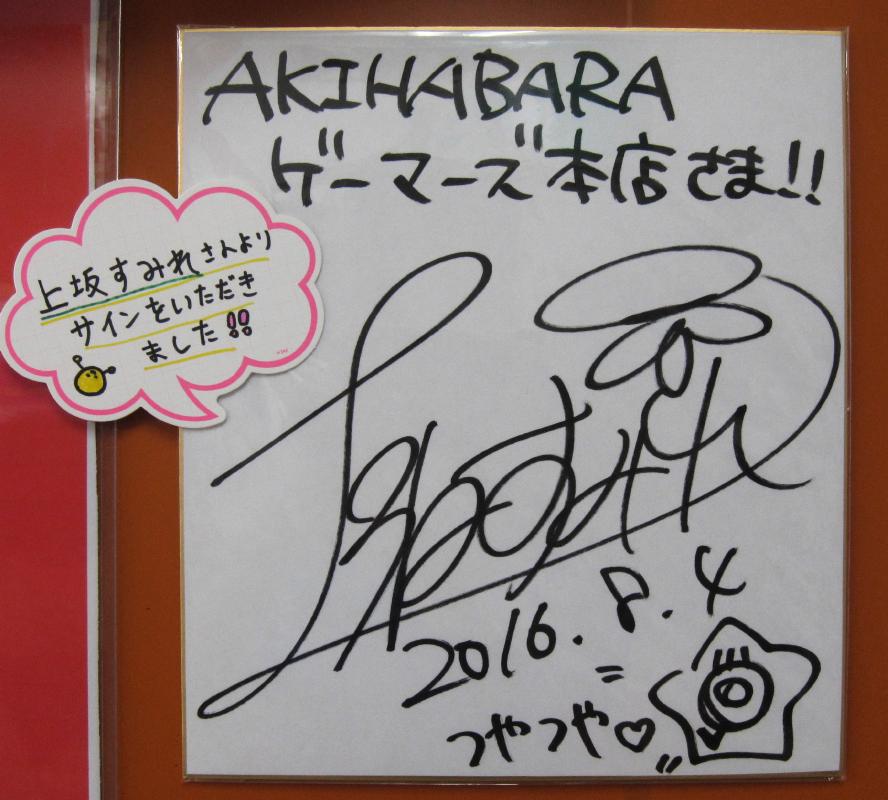 AKIHABARA
ゲーマーズ本店さま!!
上坂すみれさんより
サインをいただき
ました!!
2016.8.4
つやつや♡